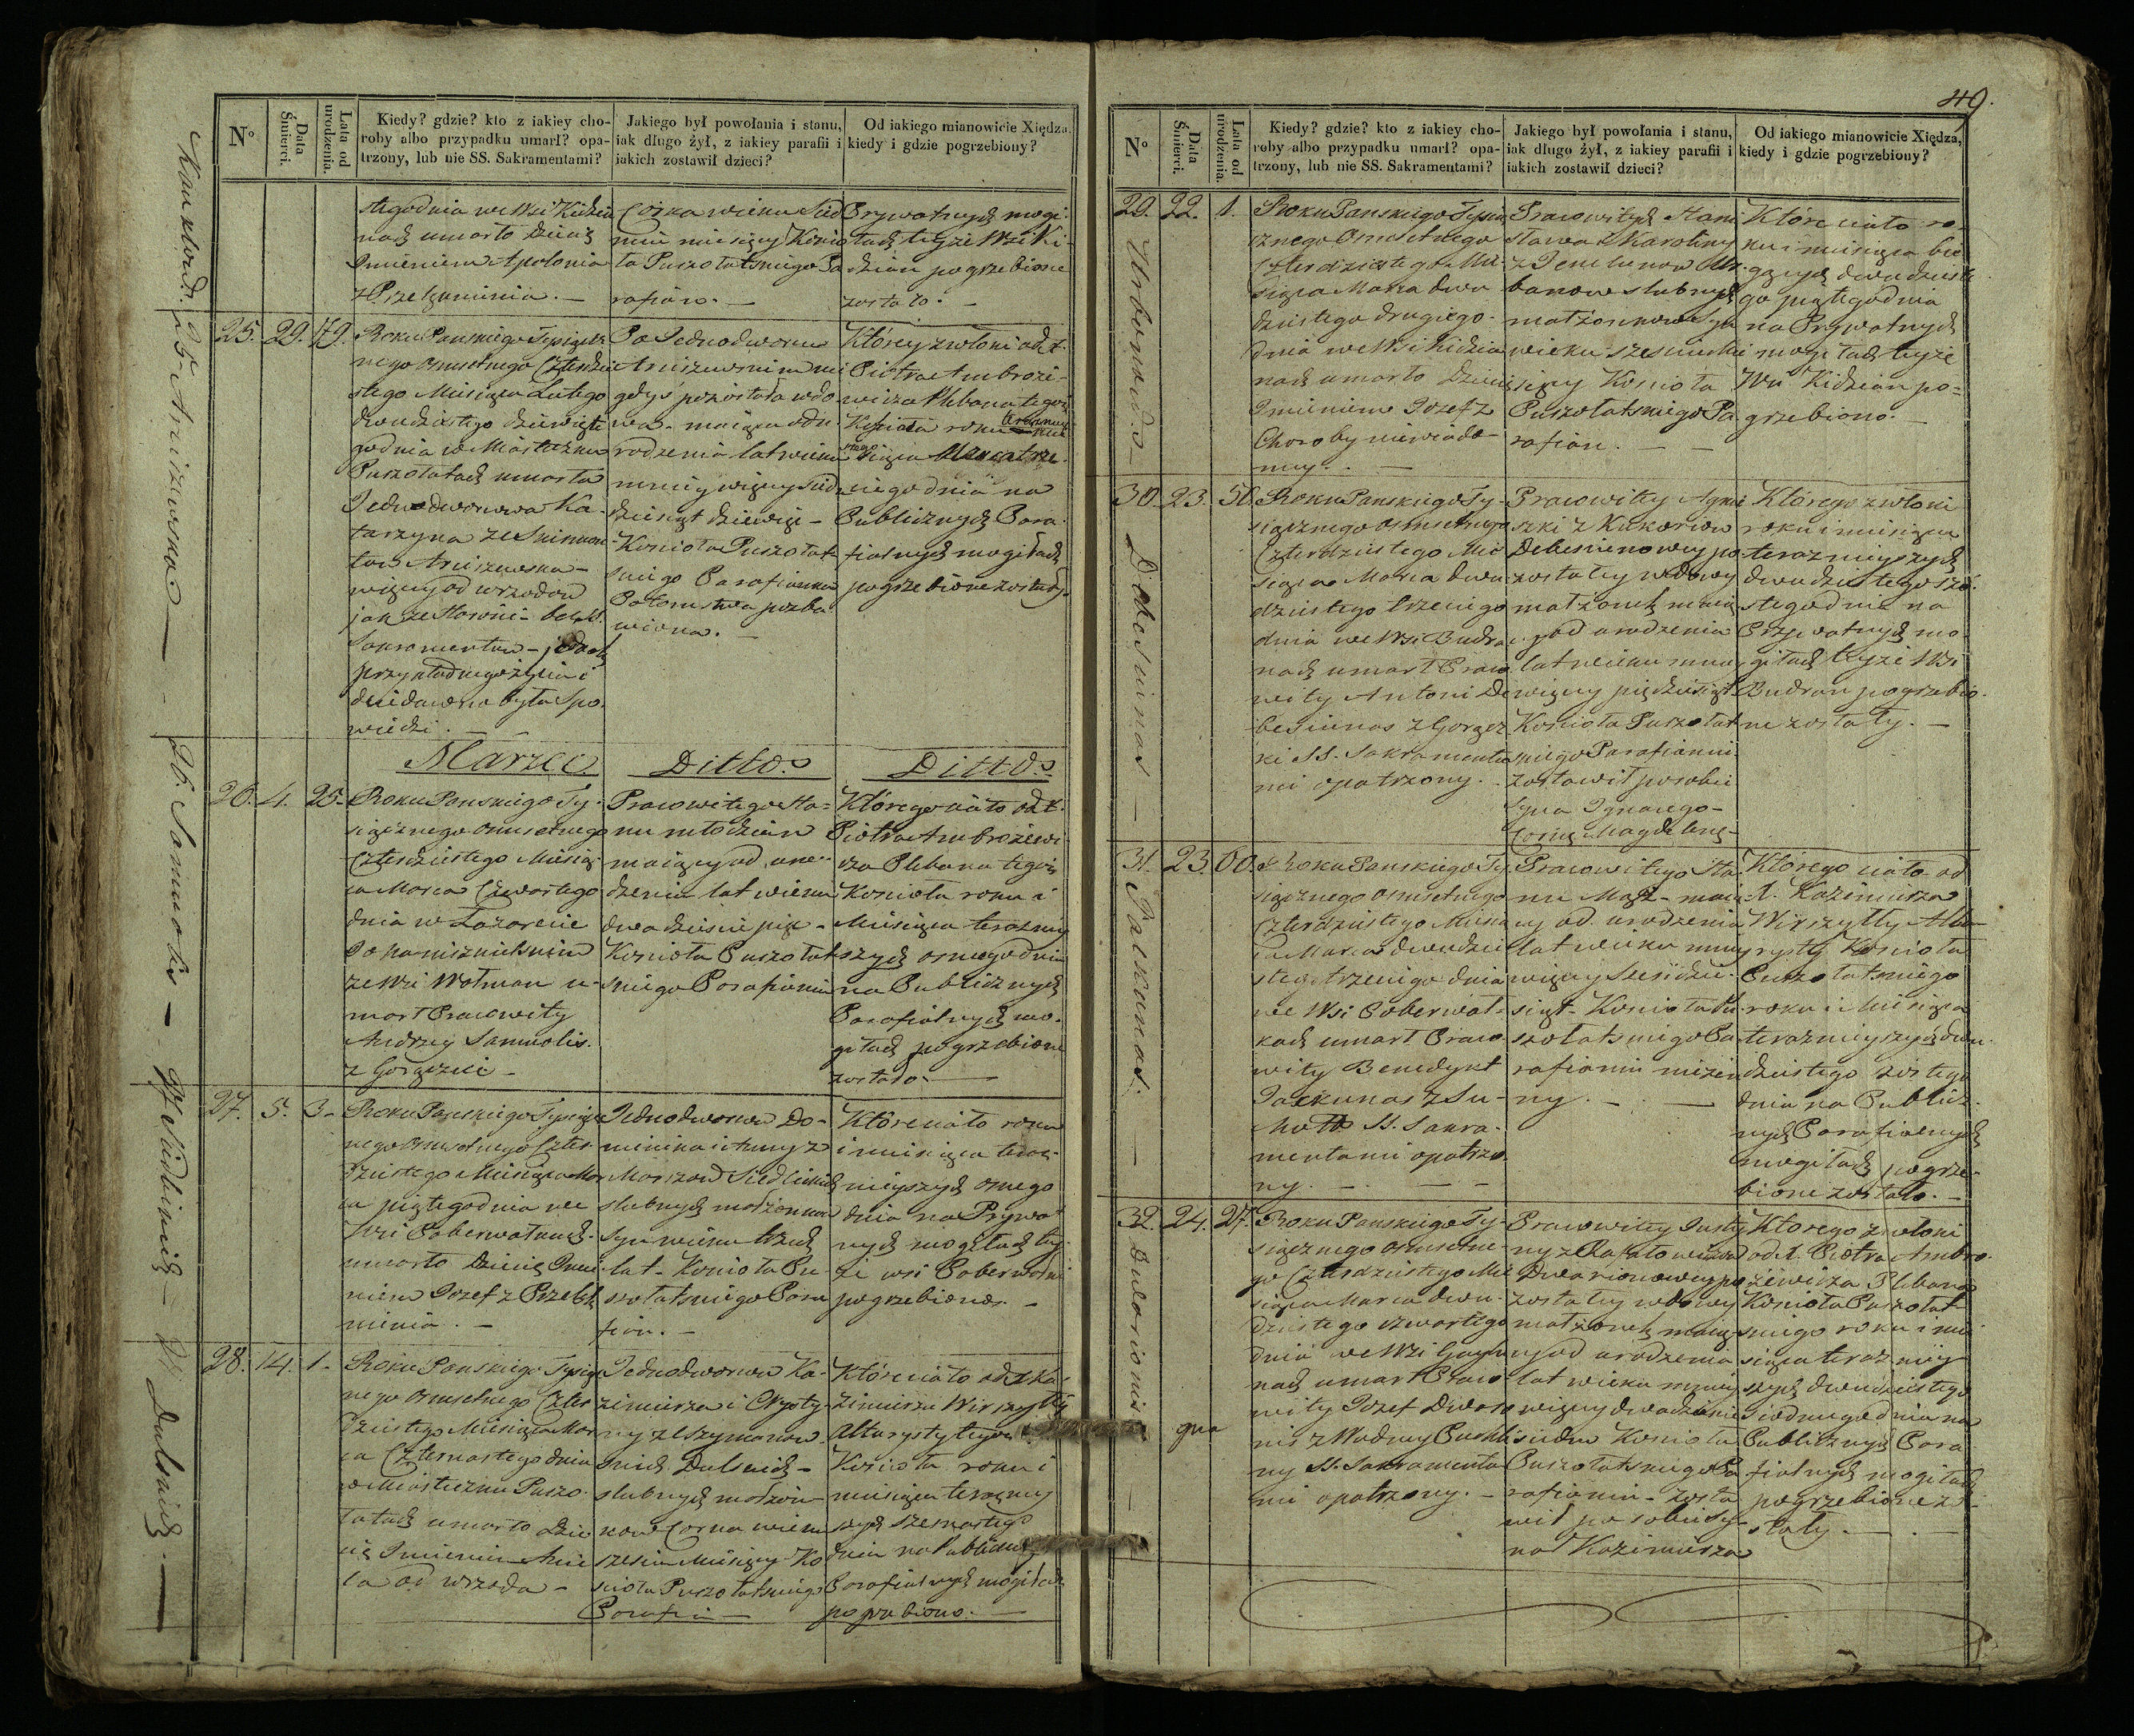 49.
N°
Data Śmierci.
Lata od urodzenia.
Kiedy? gdzie? kto z iakiey cho-
roby albo przypadku umarł? opa-
trzony, lub nie SS. Sakramentami?
Jakiego był powołania i stanu,
iak długo żył, z iakiey parafii i
iakich zostawił dzieci?
Od iakiego mianowicie Xiędza,
kiedy i gdzie pogrzebiony?
stego dnia we Wsi Kidzia
nach umarło Dziecię
Imieniem Apolonia
z Przełamania. —
Corka wieku Sied
miu miesięcy Kościo
ła Puszołatskiego Pa
rafian. —
Prywatnych mogi-
łach teyże Wsi Ki-
dzian pogrzebione
zostało. —
25. Aniszewska —
25. 29. 79.
Roku Panskiego Tysiącz
nego Osmsetnego Czterdzie
stego Miesiąca Lutego
dwudziestego dziewięte
go dnia w Miasteczku
Puszołatach umarła
Jednodworcowa Ka-
tarzyna ze
Aniszewska —
od wrzodow
Sakramentow — jednak
przykładnego życia i
dawno była Spo-
wiedzi. —
Po Jednodworcu
Aniszewskim nie
gdyś pozostała wdo
wa — maiąca od u
rodzenia lat wieku
mniey więcey Siedm
dziesiąt dziewięć —
Kościoła Puszołat
skiego Parafianka
Potomstwa pozba
wiona. —
Którey zwłoki od X.
Piotra Ambroże-
wicza Plebana tegoż
Kościoła roku
trze-
ciego dnia na
Publicznych Para-
fialnych mogiłach
pogrzebione zostały.
Marzec. Ditto. Ditto.
26. Samuolis —
26. 4. 25.
Roku Panskiego Ty-
siącznego Osmsetnego
Czterdziestego Miesią-
ca Marca Czwartego
dnia w Lazarecie
Poniemieckim
ze Wsi Wołman u-
marł Pracowity
Andrzey Samuolis
z Gorączki —
Pracowitego Sta-
nu młodzian
maiący od uro-
dzenia lat wieku
dwadzieścia pięć —
Kościoła Puszołat
skiego Parafianin
Którego ciało od X.
Piotra Ambrożewi
cza Plebana tegoż
Kościoła roku i
Miesiąca teraźniey
szych osmego dnia
na Publicznych
Parafialnych mo-
giłach pogrzebione
zostało. —
27. Siedlicnich —
27. 5. 3.
Roku Panskiego Tysiącz
nego Osmsetnego Czter
dziestego Miesiąca Mar
ca piątego dnia we
Wsi Poberwałkach
umarło Dziecię Imie
niem Jozef z Przeła
mania. —
Jednodworcow Do-
minika i Anny z
Morzow Siedlickich
slubnych małżonkow
Syn wieku trzech
lat — Kościoła Pu
szołatskiego Para
fian. —
Które ciało roku
i miesiąca teraz-
nieyszych osmego
dnia na Prywat
nych mogiłach tey-
że wsi Poberwałki
pogrzebiono. —
28. Dulskich. —
28. 14. 1.
Roku Panskiego Tysiącz
nego Osmsetnego Czter
dziestego Miesiąca Mar
ca Czternastego dnia
w Miasteczku Puszo-
łatach umarło dzie
cię Imieniem
od wrzoda —
Jednodworcow Ka-
zimierza i Krysty-
ny z Szymanow-
skich Dulskich —
slubnych małżon-
kow Corka wieku
sześciu Miesięcy Ko
ścioła Puszołatskiego
Parafian —
Które ciało od X. Ka-
zimierza Wirszyłły
Altarysty tegoż
Kościoła roku i
miesiąca teraźniey
szych szesnastego
dnia na Publicznych
Parafialnych mogiłach
pogrzebiono. —
N°
Data Śmierci.
Lata od urodzenia.
Kiedy? gdzie? kto z iakiey cho-
roby albo przypadku umarł? opa-
trzony, lub nie SS. Sakramentami?
Jakiego był powołania i stanu,
iak długo żył, z iakiey parafii i
iakich zostawił dzieci?
Od iakiego mianowicie Xiędza,
kiedy i gdzie pogrzebiony?
Urbonow. —
29. 22. 1.
Roku Panskiego Tysią
cznego Osmsetnego
Czterdziestego Mie-
siąca Marca dwu
dziestego drugiego
dnia we Wsi Kidzia
nach umarło Dziecię
Imieniem Jozef z
Choroby niewiado-
mey. —
Pracowitych Stani
sława i Karoliny
z Ur-
banow slubnych
małżonkow Syn
wieku sześciu mie
sięcy Kościoła
Puszołatskiego Pa
rafian. —
Które ciało ro-
ku i miesiąca bie
gących dwudzieste
go piątego dnia
na Prywatnych
mogiłach teyże
Wsi Kidzian po-
grzebiono. —
Debesiunas —
30. 23. 50.
Roku Panskiego Ty-
siącznego Osmsetnego
Czterdziestego Mie
siąca Marca dwu
dziestego trzeciego
dnia we Wsi Budra
nach umarł Praco
wity Antoni De
besiunas z Gorącz
ki SS. Sakramenta
mi opatrzony.
Pracowitey Agnie
szki z Kukoriow
Debesiunowey po
zostałey wdowy
małżonek maią
cy od urodzenia
lat wieku mniey
więcey pięćdziesiąt
Kościoła Puszołat
skiego Parafianin
zostawił po sobie
Syna Ignacego —
Corkę Magdalenę —
Którego zwłoki
roku i miesiąca
teraznieyszych
dwudziestego szo-
stego dnia na
Prywatnych mo-
giłach teyże Wsi
Budran pogrzebio-
ne zostały. —
Jaekunas. —
31. 23. 60.
Roku Panskiego Ty
siącznego Osmsetnego
Czterdziestego Miesią
ca Marca dwudzie
stego trzeciego dnia
we Wsi Poberwał-
kach umarł Praco
wity Benedykt
Jaekunas z Su-
chot SS. Sakra-
mentami opatrzo-
ny. —
Pracowitego Sta
nu Mąż — maią
cy od urodzenia
lat wieku mniey
więcey Sześćdzie-
siąt — Kościoła Pu
szołatskiego Pa
rafianin
ny. —
Którego ciało od
X. Kazimierza
Wirszyłły Alta-
rysty Kościoła
Puszołatskiego
roku i Miesiąca
teraznieyszych dwu-
dziestego szostego
dnia na Publicz-
nych Parafialnych
mogiłach pogrze-
bione zostało. —
Dworionis —
32. 24. 27.
Roku Panskiego Ty-
siącznego Osmsetne-
go Czterdziestego Mie
siąca Marca dwu-
dziestego czwartego
dnia we Wsi
nach umarł Praco
wity Jozef Dworio
nis z Wodney Puchli
ny SS. Sakramenta
mi opatrzony. —
Pracowitey Justy
ny z
Dworionowey po
zostałey wdowy
małżonek maią
cy od urodzenia
lat wieku mniey
więcey dwadzieścia
siedm Kościoła
Puszołatskiego Pa
rafianin — zosta
wił po sobie Sy-
na Kazimierza
Ktorego zwłoki
od X. Piotra Ambro-
żewicza Plebana
Kościoła Puszołat
skiego roku i mie
siąca teraz niey
szych dwudziestego
siodmego dnia na
Publicznych Para
fialnych mogiłach
pogrzebione zo-
stały. —